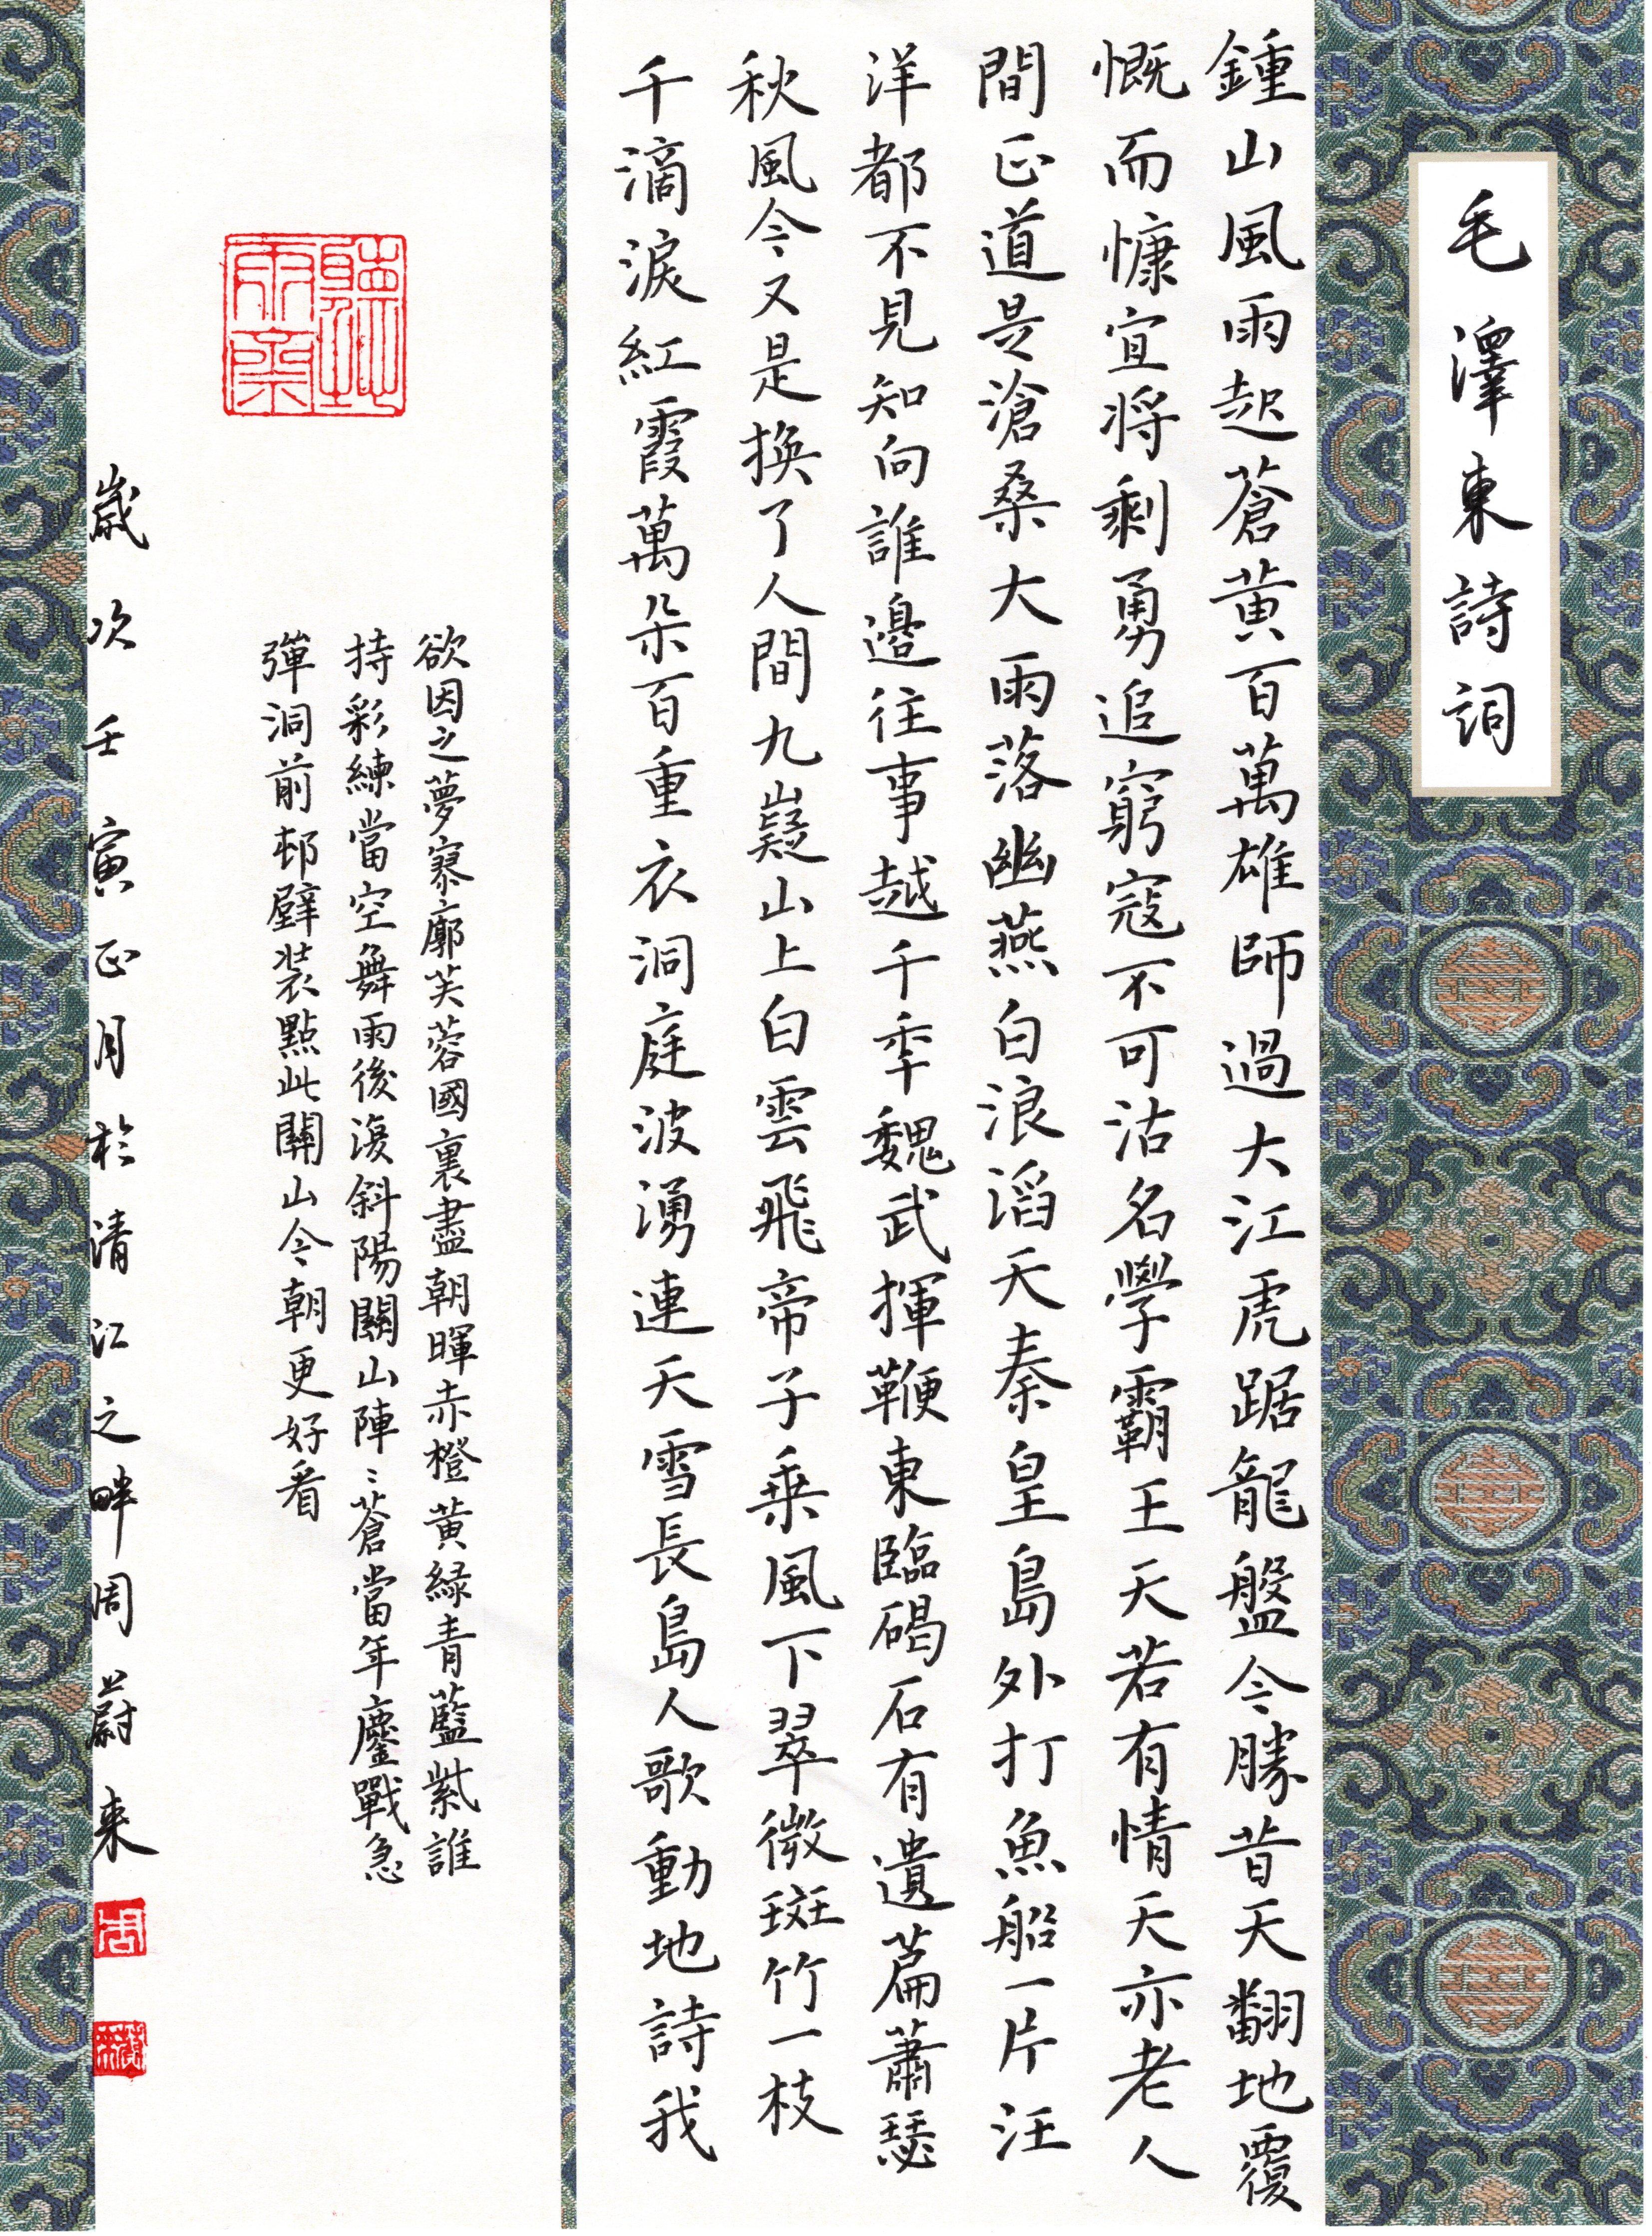 毛澤東詩詞
鍾山風雨起蒼黃百萬雄師過大江虎踞龍盤今勝昔天翻地覆
慨而慷宜將剩勇追窮寇不可沽名學霸王天若有情天亦老人
間正道是滄桑大雨落幽燕白浪滔天秦皇島外打魚船一片汪
洋都不見知向誰邊往事越千年魏武揮鞭東臨碣石有遺篇蕭瑟
秋風今又是換了人間九嶷山上白雲飛帝子乘風下翠微斑竹一枝
千滴淚紅霞萬朵百重衣洞庭波湧連天雪長島人歌動地詩我
欲因之夢寥廓芙蓉國裏盡朝暉赤橙黃綠青藍紫誰
持彩練當空舞雨後復斜陽關山陣〻蒼當年鏖戰急
彈洞前邨壁裝點此關山今朝更好看
歲次壬寅正月於清江之畔周蔚來
聽雨齋
周
蔚來